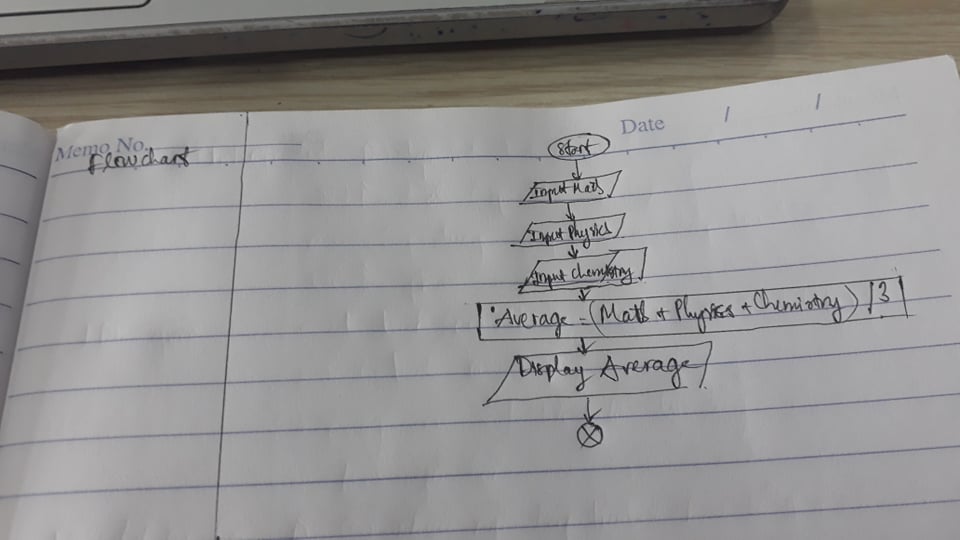 Memo No.
Date / /
Flowchart
Start
Input Math
Input Physics
Input Chemistry
Average = (Math + Physics + Chemistry) / 3
Display Average